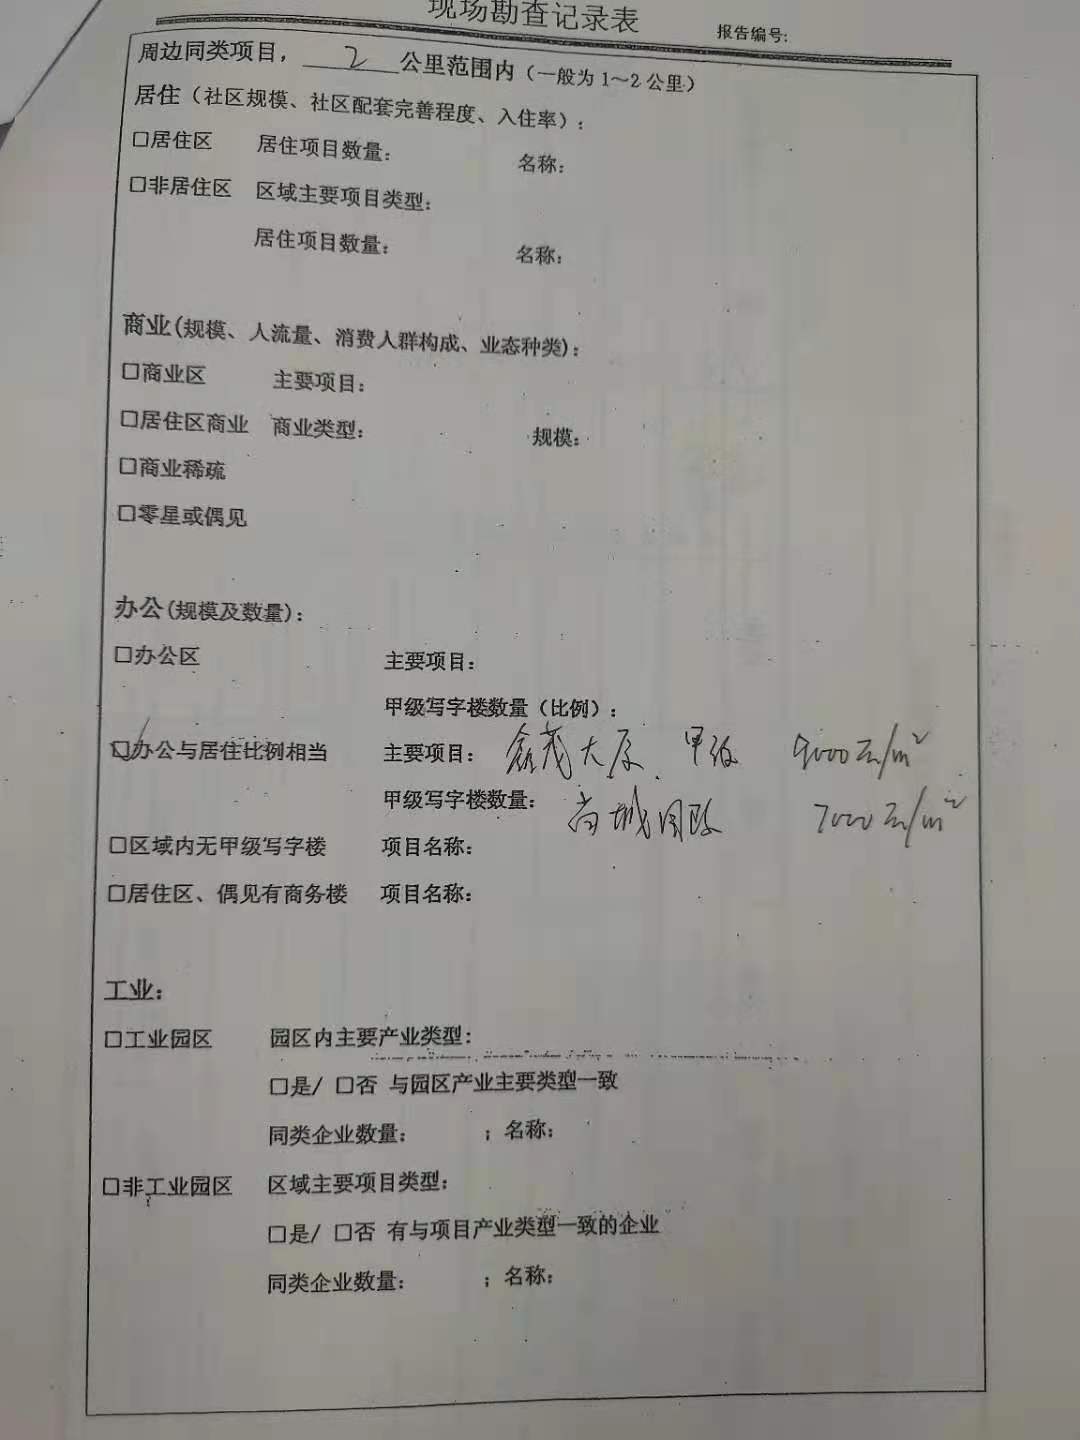 现场勘查记录表
报告编号:
周边同类项目，2公里范围内（一般为1～2公里）
居住（社区规模、社区配套完善程度、入住率）：
□居住区 居住项目数量： 名称：
□非居住区 区域主要项目类型：
居住项目数量： 名称：
商业(规模、人流量、消费人群构成、业态种类)：
□商业区 主要项目：
□居住区商业 商业类型： 规模：
□商业稀疏
□零星或偶见
办公(规模及数量)：
□办公区 主要项目：
甲级写字楼数量（比例）：
☑办公与居住比例相当 主要项目：鑫茂大厦、甲级 9000元/m²
甲级写字楼数量：尚城国际 7000元/m²
□区域内无甲级写字楼 项目名称：
□居住区、偶见有商务楼 项目名称：
工业：
□工业园区 园区内主要产业类型：
□是/ □否 与园区产业主要类型一致
同类企业数量： ；名称：
□非工业园区 区域主要项目类型：
□是/ □否 有与项目产业类型一致的企业
同类企业数量： ；名称：